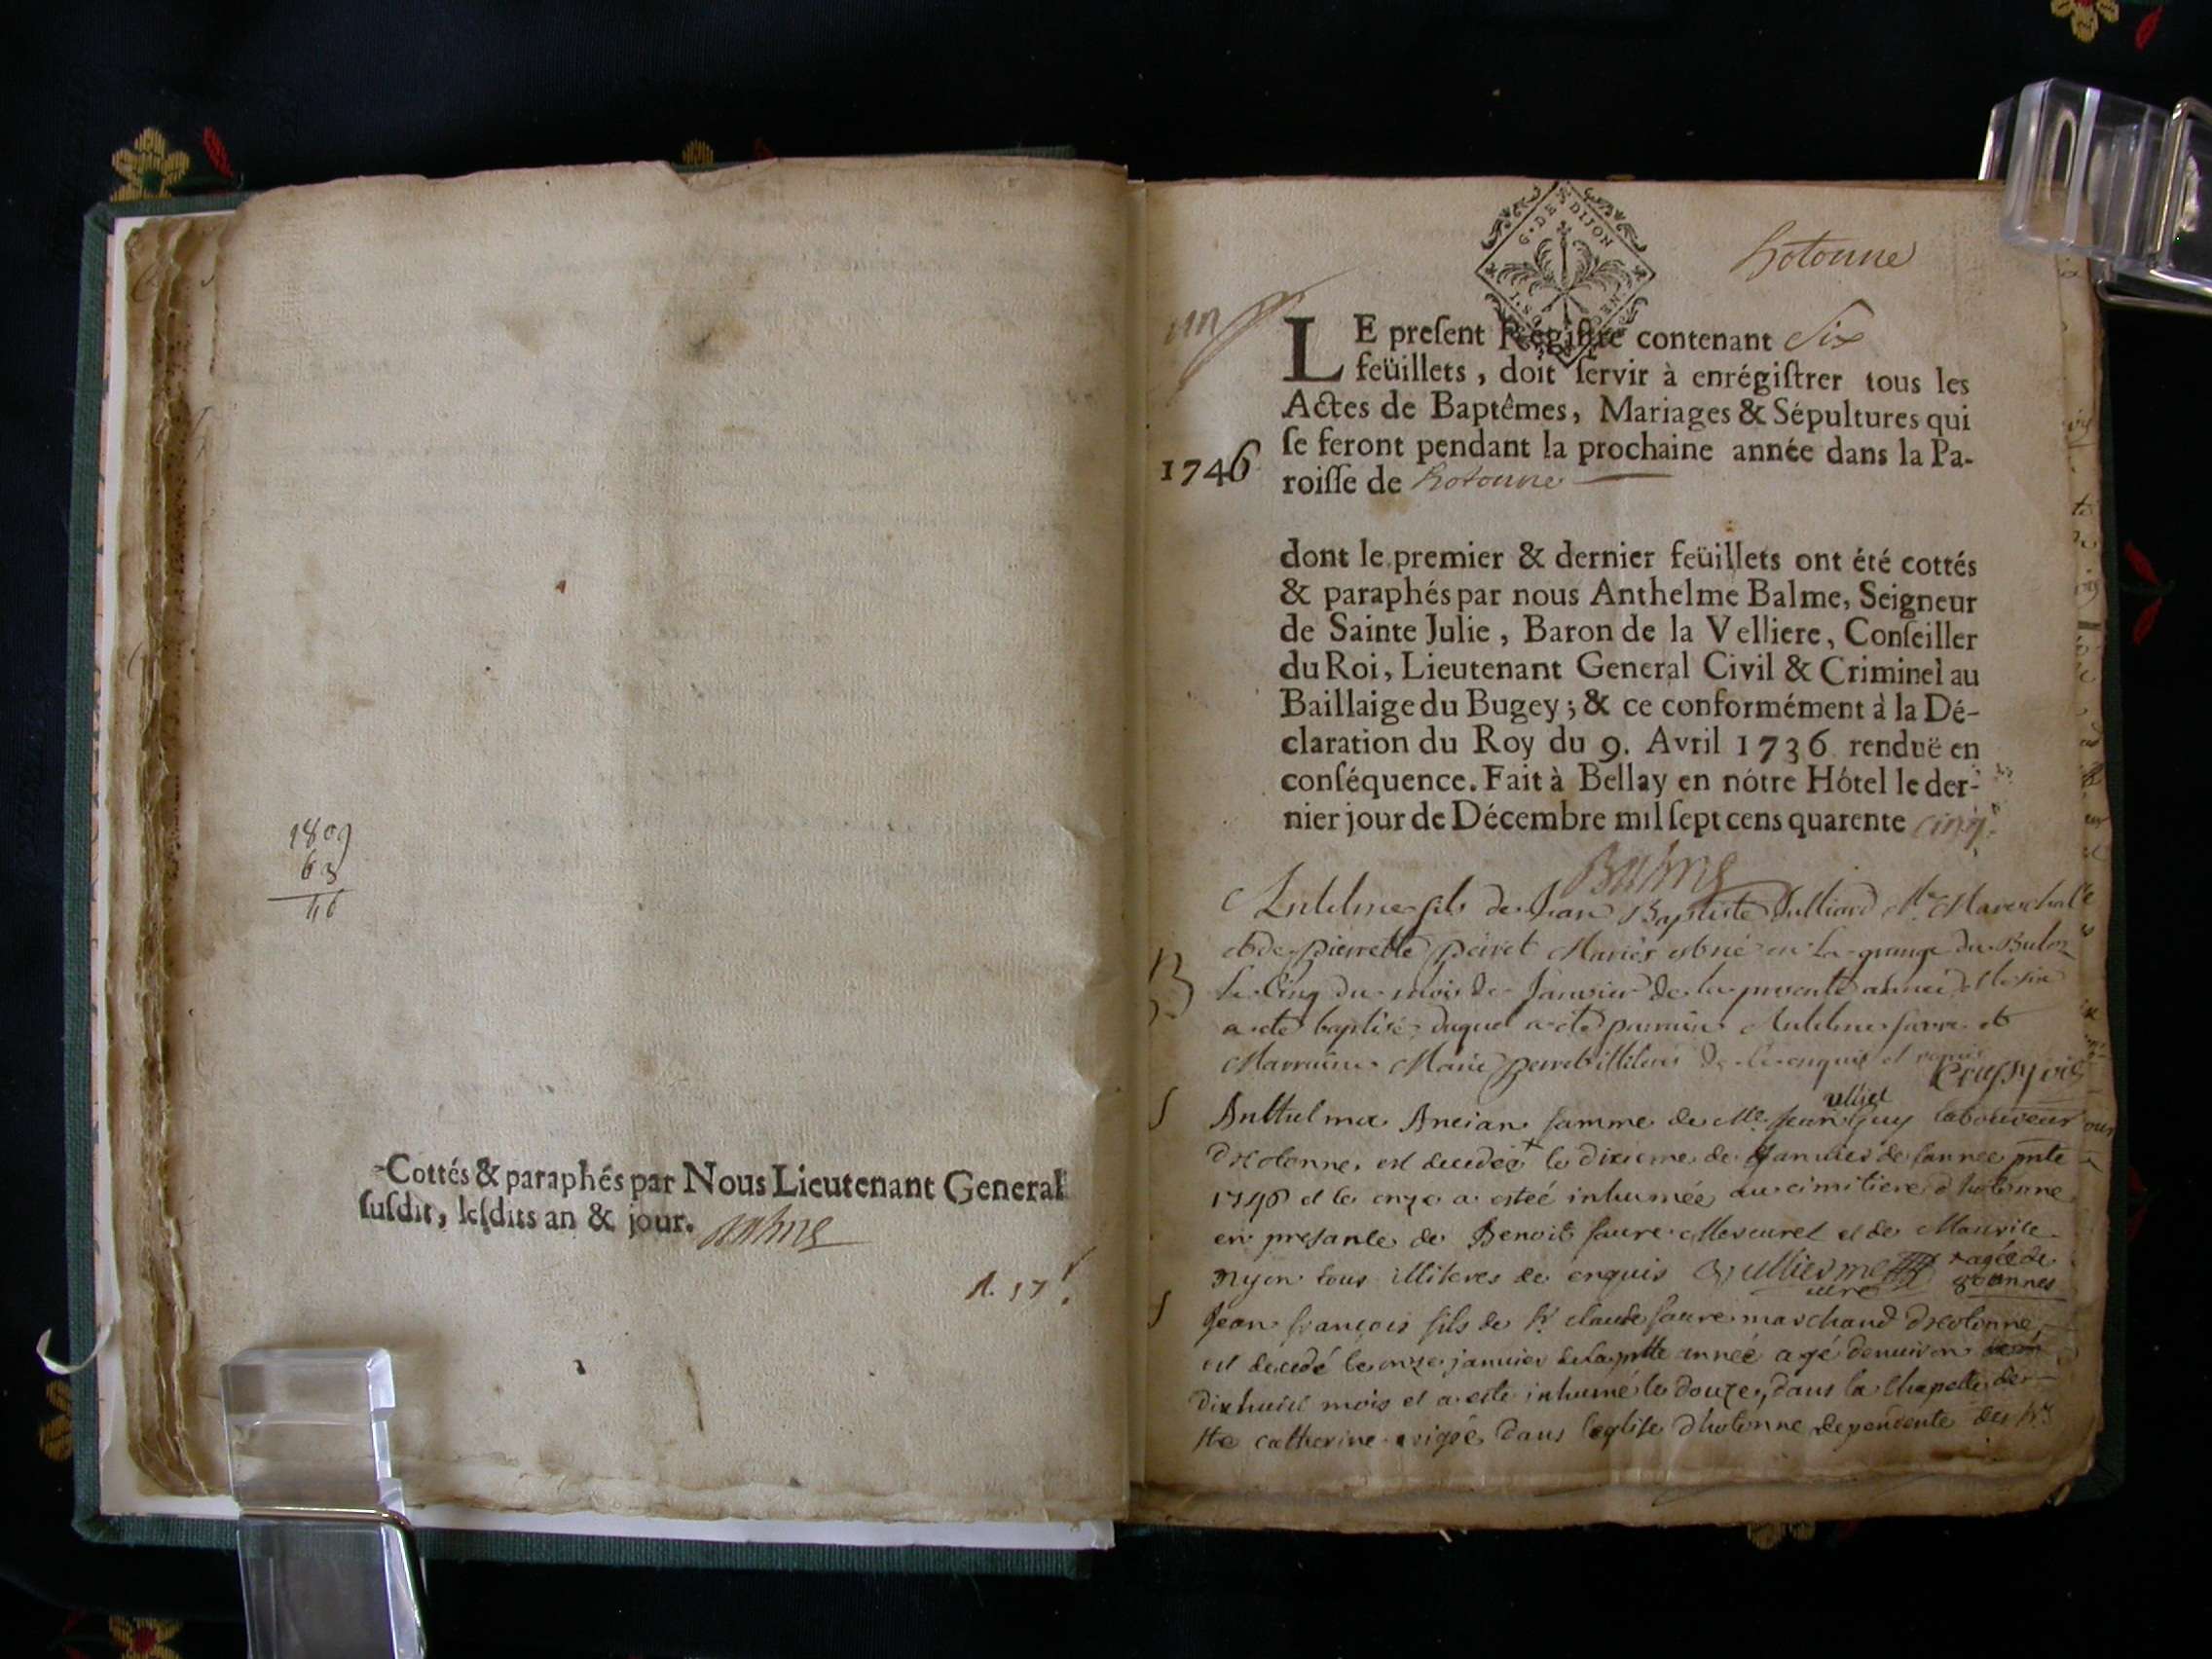 1809
63
Cottés & paraphés par Nous Lieutenant General
susdit, lesdits an & jour. Balme
G · DE · DIJON
hotonne
un
LE present Régistre contenant Six
feüillets, doit servir à enrégistrer tous les
Actes de Baptêmes, Mariages & Sépultures qui
se feront pendant la prochaine année dans la Pa-
1746
roisse de hotonne
dont le premier & dernier feüillets ont été cottés
& paraphés par nous Anthelme Balme, Seigneur
de Sainte Julie, Baron de la Velliere, Conseiller
du Roi, Lieutenant General Civil & Criminel au
Baillaige du Bugey; & ce conformément à la Dé-
claration du Roy du 9. Avril 1736 renduë en
conséquence. Fait à Bellay en nótre Hótel le der-
nier jour de Décembre mil sept cens quarente cinq.
Balme
Antelme fils de Jean Baptiste Julliard Me Mareschal
et de pierrette peiret Mariés est né en la grange du
B
le cinq du mois de Janvier de la presente année et le six
a ete baptisé duquel a ete parrain Antelme favre et
Marraine Marie perret illiterés de ce enquis et requis
S
Anthelma Ancian famme de Me Jean Guy velliet laboureur
d'hotonne, est decedée + le dixieme de Janvier de l'annee pnte
1746 et le onze a esteé inhumée au cimitiere d'hotonne
en presance de Benoit faure Mercurel et de Maurice
nyon tous illiteres de enquis Vulliermet + agée de
curé 80 annes
S
Jean françois fils de Sr claude favre marchand d'hotonne
est decedé le onze janvier de la pntte année agé denuiron
dixhuict mois et a esté inhumé le douze, dans la Chapelle de
Ste catherine erigée dans l'eglise d'hotonne dependente des Srs